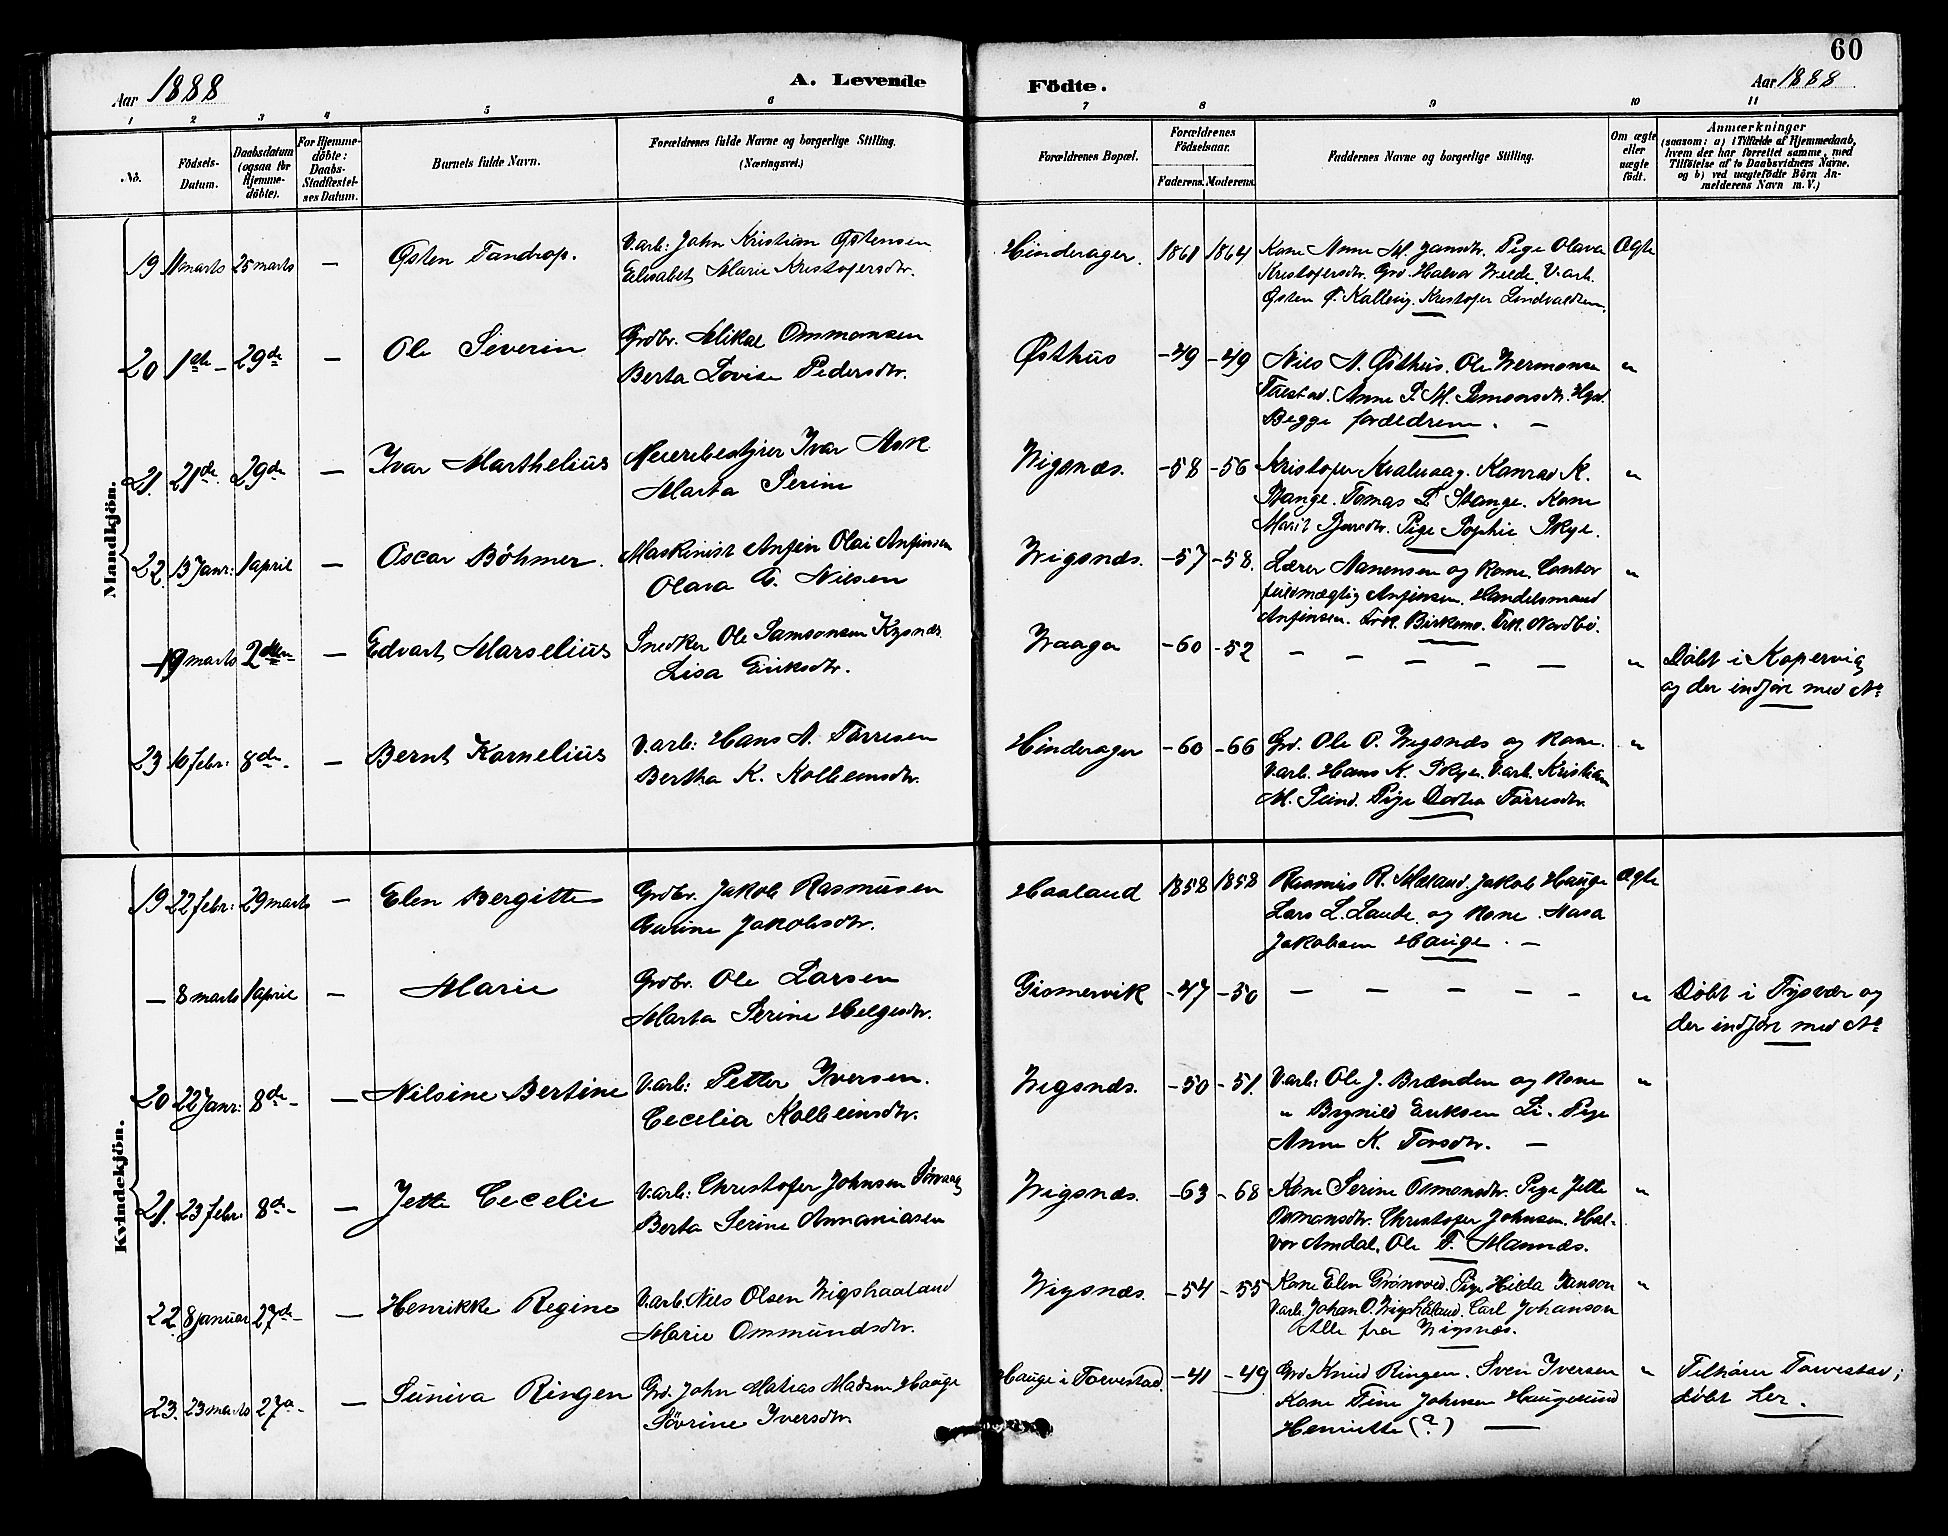 60
Aar 1888
A. Levende
Födte.
Aar 1888
1 2 3 4 5 6 7 8 9 10 11
No.
Födsels-
Datum.
Daabsdatum
(ogsaa for
Hjemme-
döbte).
For Hjemme-
döbte:
Daabs-
Stadfæstel-
ses Datum.
Barnets fulde Navn.
Forældrenes fulde Navne og borgerlige Stilling.
(Næringsvei.)
Forældrenes Bopæl.
Forældrenes
Födselsaar.
Faderens. Moderens.
Faddernes Navne og borgerlige Stilling.
Om ægte
eller
uægte
födt.
Anmærkninger
(saasom: a) i Tilfælde af Hjemmedaab,
hvem der har forrettet samme, med
Tilföielse af to Daabsvidners Navne,
og b) ved uægtefödte Börn An-
melderens Navn m. V.)
Mandkjön.
19 11 marts 25 marts — Østen Tandrop.
Varb: John Kristian Østensen
Elisabet Marie Kristofersdtr.
Hinderager. 1861 1864
Kone Anne M. Jansdtr. Pige Olava
Kristofersdtr. Grd. Halvor Velde. Varb.
Østen Ø. Kallevig. Kristofer Lindvaldsen.
Ægte
20 1ste — 29de — Ole Severin
Grdbr. Mikal Ommonsen
Berta Lovise Pedersdtr.
Østhus — 49 — 49
Nils N. Østhus. Ole Wermonsen
Anne S. M. Simonsdtr.
Begge forældrene. —
"
21. 21de 29de — Ivar Marthelius
Meieribestyrer Ivar Ask
Marta Serine
Wigsnæs. — 58 — 56
Kristofer Kvalevaag. Konrad K.
Stange. Tomas L. Stange. Kone
Marit Pige Sophie Skye.
"
22. 13 Janr: 1 april — Oscar Böhmer.
Maskinist Anfin Olai Anfinsen
Olava T. Nilsen
Wigsnæs. — 57 — 58.
Lærer Nanensen og Kone. Contor
fuldmægtig Anfinsen. Handelsmand
Anfinsen. Frk. Birkemo. Frk. Nordbö.
"
— 19 marts 2den — Edvart Marselius
Snedker Ole Samsonsen Kysnæs
Lisa Eriksdtr.
Waaga — 60 — 52
— — — — —
" Döbt i Kopervig
og der indfört med No
23 10 febr: 8de — — Bernt Kornelius
Varb: Hans A. Tørresen
Bertha K. Kolbeinsdtr.
Hinderager — 60 — 66
Grd. Ole O. Wigsnæs og Kone.
Varb. Hans K. Skye. Varb. Kristian
M. Sund. Pige Dortea Tørresdtr.
"
Kvindekjön.
19 22 febr: 29 marts — Elen Bergitte
Grdbr. Jakob Rasmusen
Eurine Jakobsdtr.
Haaland 1858 1858
Rasmus R. Mæland. Jakob Hauge
Lars L. Lande og Kone. Aasa
Jakobsen Hauge. —
Ægte
— 8 marts 1 april — Marie
Grdbr. Ole Larsen
Marta Serine Helgesdtr.
Gismervik — 47 — 50
— — — — —
" Döbt i Tysvær og
der indfört med No
20 22 Janr: 8de — — Nilsine Bertine
Varb: Petter Iversen.
Cecelia Kolbeinsdtr.
Wigsnæs. — 50 — 51.
Varb: Ole J. Brænden og Kone
" Brynild Eriksen Li. Pige
Anne K. Torsdtr. —
"
21. 23 febr. 8de — — Jette Cecelie
Varb: Christofer Johnsen
Berta Serine Annaniasen
Wigsnæs. — 63 — 68
Kone Serine Osmonsdtr. Pige Jette
Osmansdtr. Christofer Johnsen. Hal-
vor Amdal. Ole T. Mannæs.
"
22. 8 januar 27de — — Henrikke Regine
Varb. Nils Olsen Wigshaaland
Marie Ommundsdtr.
Wigsnæs. — 54 — 55
Kone Elen Grönvold. Pige Hilda Janson
Varb. Johan O. Wigshaaland. Carl Johanson
Alle fra Wigsnæs.
"
23. 23 marts 27de — — Suniva Ringen
Grd. John Matias Madsen Hauge
Sövrine Iversdtr.
Hauge i Torvestad. — 41 — 49
Grd Knud Ringen. Sven Iversen
Kone Tine Johnsen Haugesund
Henriette (?) —
" Tilhörer Torvestad;
döbt her.